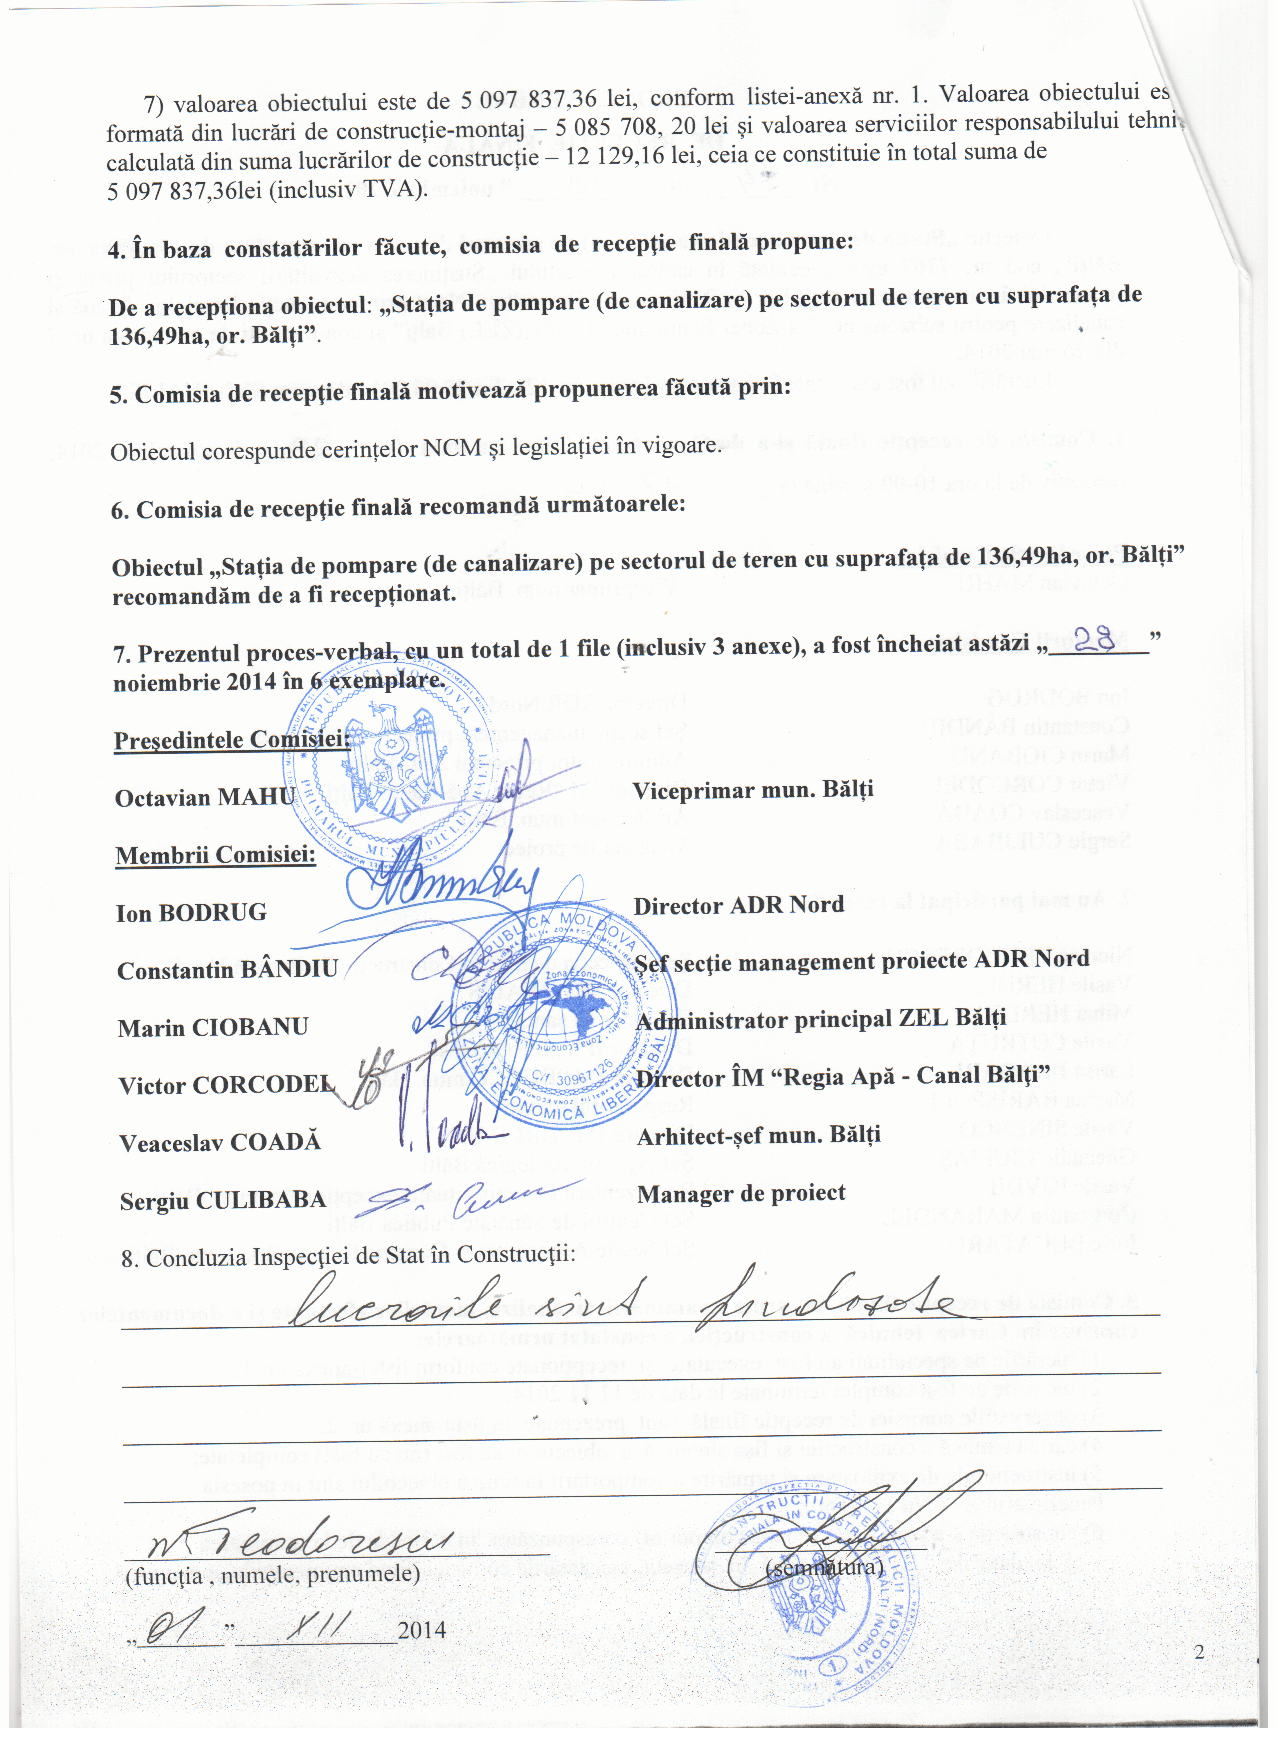 7) valoarea obiectului este de 5 097 837,36 lei, conform listei-anexă nr. 1. Valoarea obiectului es
formată din lucrări de construcție-montaj – 5 085 708, 20 lei și valoarea serviciilor responsabilului tehni
calculată din suma lucrărilor de construcție – 12 129,16 lei, ceia ce constituie în total suma de
5 097 837,36lei (inclusiv TVA).
4. În baza constatărilor făcute, comisia de recepţie finală propune:
De a recepționa obiectul: „Stația de pompare (de canalizare) pe sectorul de teren cu suprafața de
136,49ha, or. Bălți”.
5. Comisia de recepţie finală motivează propunerea făcută prin:
Obiectul corespunde cerințelor NCM și legislației în vigoare.
6. Comisia de recepţie finală recomandă următoarele:
Obiectul „Stația de pompare (de canalizare) pe sectorul de teren cu suprafața de 136,49ha, or. Bălți”
recomandăm de a fi recepționat.
7. Prezentul proces-verbal, cu un total de 1 file (inclusiv 3 anexe), a fost încheiat astăzi „ 28 ”
noiembrie 2014 în 6 exemplare.
Președintele Comisiei:
Octavian MAHU Viceprimar mun. Bălți
Membrii Comisiei:
Ion BODRUG Director ADR Nord
Constantin BÂNDIU Șef secţie management proiecte ADR Nord
Marin CIOBANU Administrator principal ZEL Bălți
Victor CORCODEL Director ÎM “Regia Apă - Canal Bălţi”
Veaceslav COADĂ Arhitect-șef mun. Bălți
Sergiu CULIBABA Manager de proiect
REPUBLICA MOLDOVA
PRIMARUL MUNICIPIULUI BĂLȚI
REPUBLICA MOLDOVA
Zona Economica Libera
C/f 30967126
ZONA ECONOMICĂ LIBERĂ BĂLȚI
8. Concluzia Inspecţiei de Stat în Construcţii:
lucrarile sint
Teodorescu
(funcţia , numele, prenumele) (semnătura)
„ 01 ” XII 2014
2